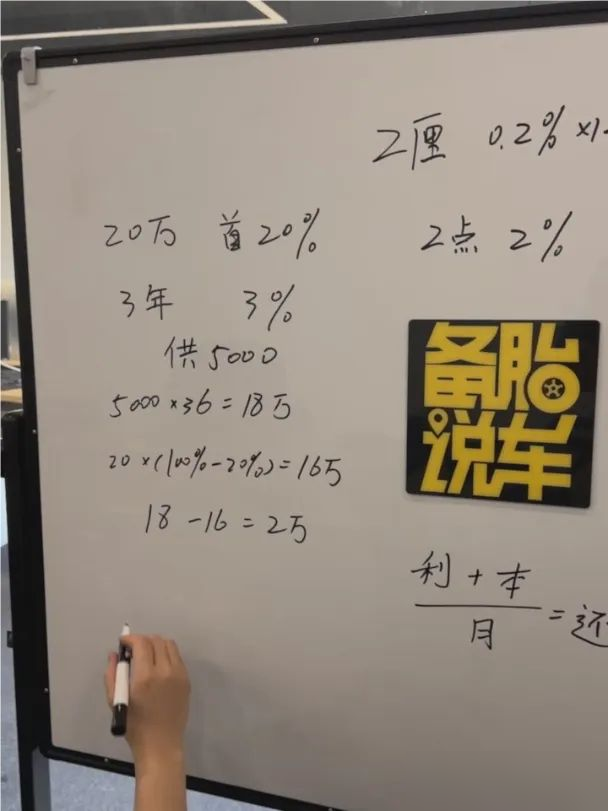 20万 首20%
3年 3%
供5000
5000×36=18万
20×(100%-20%)=16万
18-16=2万
2厘 0.2%×1
2点 2%
备胎
说车
利+本
月
=还